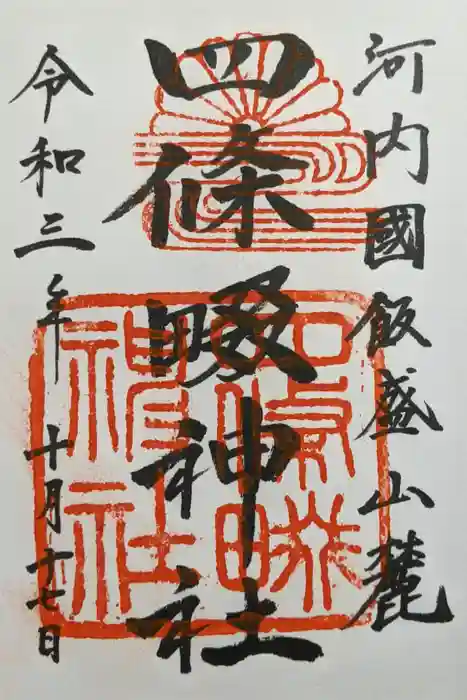 河内國飯盛山麓
四條畷神社
令和三年十月十七日
四條畷神社